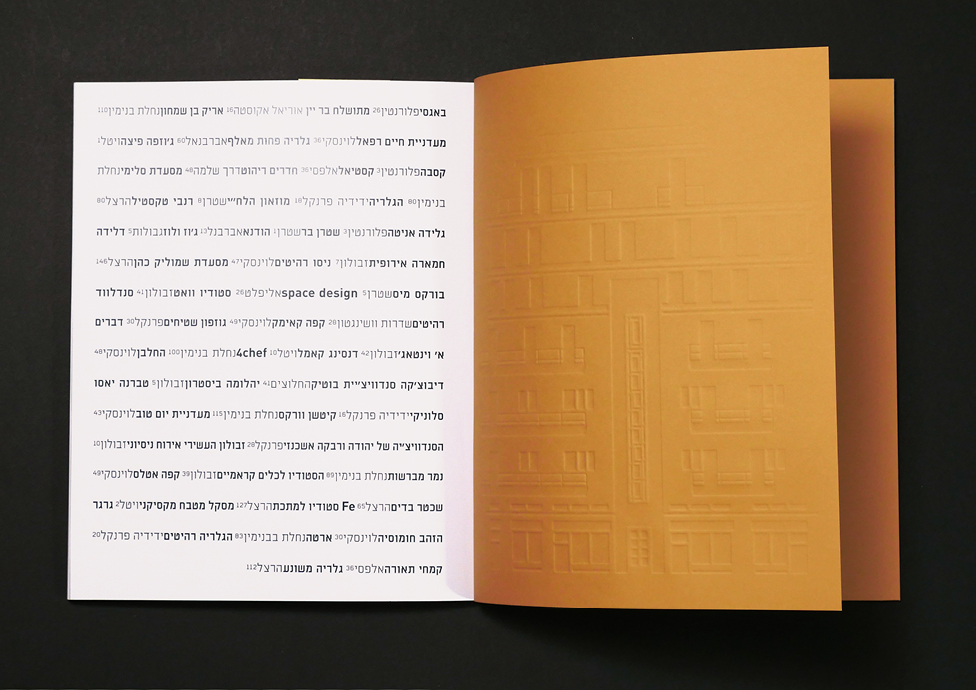 באגסיפלורנטין26 מתושלח בר יין אוריאל אקוסטה16 אריק בן שמחוןנחלת בנימין110
מעדניית חיים רפאללוינסקי36 גלריה פחות מאלףאברבנאל60 ג׳וזפה פיצהויטל1
קסבהפלורנטין3 קסטיאלאלפסי36 חדרים ריהוטדרך שלמה48 מסעדת סלימינחלת
בנימין80 הגלריהידידיה פרנקל18 מוזאון הלח״ישטרן8 רנבי טקסטילהרצל80
גלידה אניטהפלורנטין3 שטרן ברשטרן1 הודנאאברבנל13 ג׳וז ולוזגבולות5 דלידה
חמארה אירופיתזבולון7 ניסו רהיטיםלוינסקי47 מסעדת שמוליק כהןהרצל146
בורקס מיסשטרן5 space designאליפלט26 סטודיו וואטזבולון41 סנדלווד
רהיטיםשדרות וושינגטון20 קפה קאימקלוינסקי49 גוזפון שטיחיםפרנקל30 דברים
א׳ וינטאג׳זבולון42 דנסינג קאמלויטל10 4chefנחלת בנימין100 החלבןלוינסקי48
דיבוצ׳קה סנדוויצ׳יית בוטיקהחלוצים41 יהלומה ביסטרוןזבולון5 טברנה יאסו
סלוניקיידידיה פרנקל16 קיטשן וורקסנחלת בנימין115 מעדניית יום טובלוינסקי43
הסנדוויצ׳יה של יהודה ורבקה אשכנזיפרנקל28 זבולון העשירי אירוח ניסיוניזבולון10
נמר מברשותנחלת בנימין89 הסטודיו לכלים קראמייםזבולון39 קפה אטלסלוינסקי49
שכטר בדיםהרצל65 Fe סטודיו למתכתהרצל127 מסקל מטבח מקסיקניויטל2 גרגר
הזהב חומוסיהלוינסקי30 ארטהנחלת בבנימין83 הגלריה רהיטיםידידיה פרנקל20
קמחי תאורהאלפסי36 גלריה משונעהרצל112